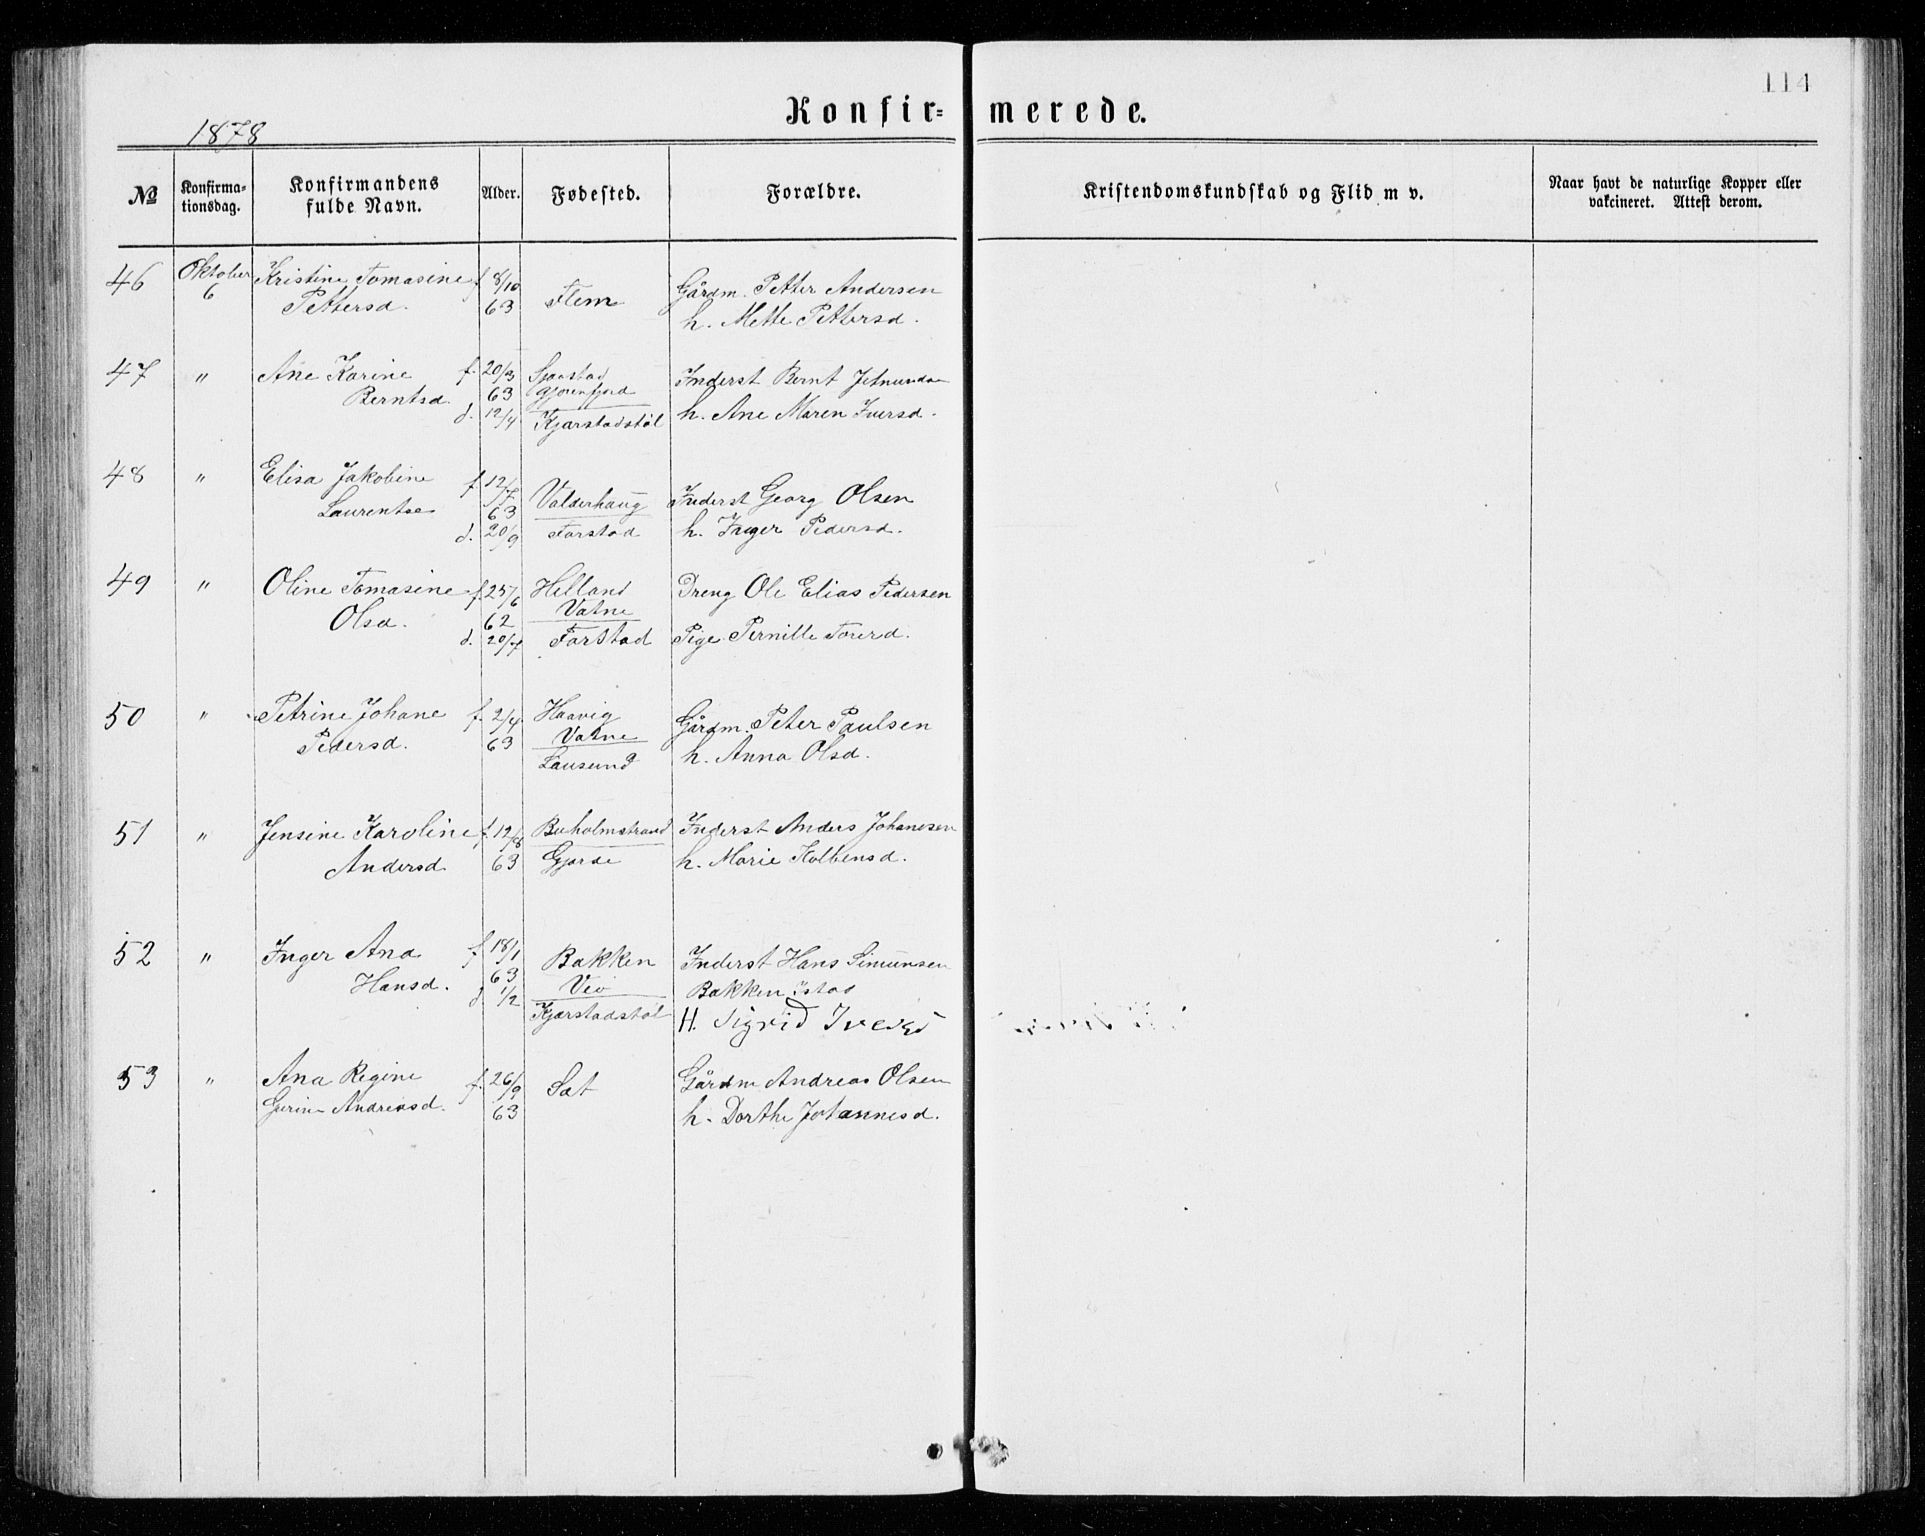 114
Konfirmerede.
1878
No
Konfirmationsdag.
Konfirmandens fulde Navn.
Alder.
Fødested.
Forældre.
Kristendomskundskab og Flid m v.
Naar havt de naturlige Kopper eller vakcineret. Attest derom.
46 Oktober 6 Kristine Tomasine f. 8/10 Flem Gårdm. Petter Andersen
Pettersd. 63 h. Mette Pettersd.
47 " Ane Karine f. 20/3 Inderst Bernt
Berntsd. 63 h. Ane Maren Iversd.
d. 12/4 Kjærstadstøl
48 " Elisa Jakobine f. 12/7 Valderhaug Inderst Georg Olsen
Laurentse 63 Farstad h. Inger Pedersd.
d. 20/9
49 " Oline Tomasine f. 25/6 Helland Dreng Ole Elias Pedersen
Olsd. 62 Vatne Pige Pernille
d. 20/7 Farstad
50 " Petrine Johane f. 2/4 Haavig Gårdm. Peter Paulsen
Pedersd. 63 Vatne h. Anna Olsd.
Lausund
51 " Jensine Karoline f. 12/8 Buholmstrand Inderst Anders Johanesen
Andersd. 63 Gjørde h. Marie Kolbensd.
52 " Inger Ana f. 18/1 Bakken Inderst Hans Simunsen
Hansd. 63 Veø Bakken Istad
d. 1/2 Kjærstadstøl H. Sigrid Iversd
53 " Ana Regine f. 26/9 Sæt Gårdm Andreas Olsen
Gurine Andreasd. 63 h. Dorthe Johannesd.